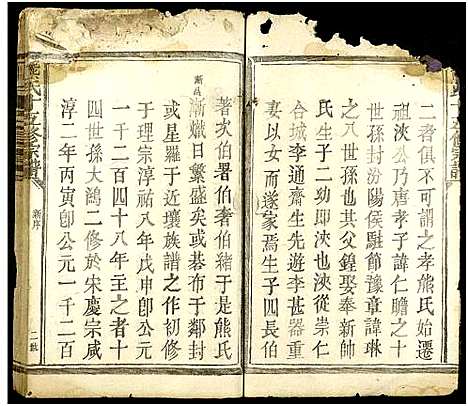 二者俱不可謂之孝熊氏始遷
祖浹公乃唐孝子諱仁贍之十
世孫封汾陽侯駐節豫章諱琳
者也因其父鍠娶奉新帥
氏生子二功即浹也浹從崇仁
合城李通齋生先遊李甚器重
妻以女而遂家焉生子四長伯
著次伯署伯奢伯緒于是熊氏
漸熾日繁盛矣或碁布于鄰封
或星羅于近壤族譜之作初修
于理宗淳祐八年戊申卽公元
一千二百四十八年主之者十
四世孫大鴻二修於宋慶宗咸
淳二年丙寅卽公元一千二百
氏十五修宗譜
新序
二